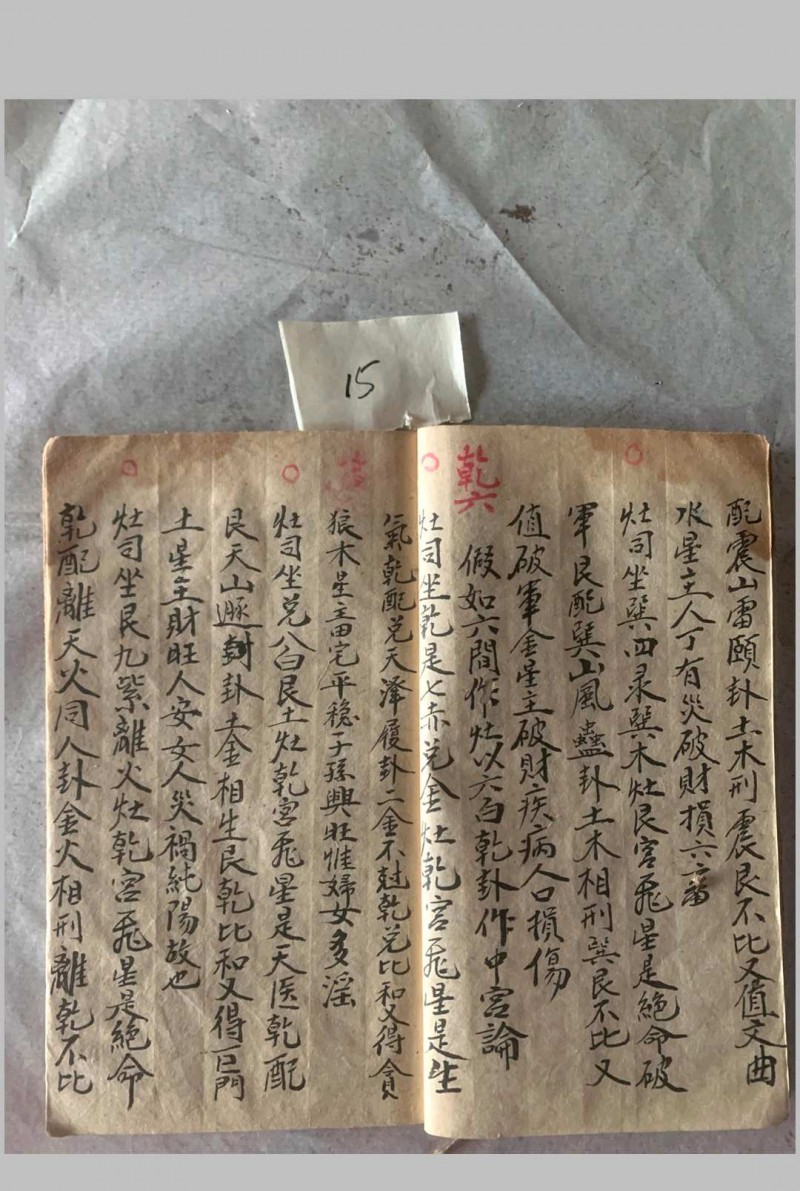 15
配震山雷頤卦土木刑震艮不比又值文曲
水星主人丁有災破財損六畜
灶司坐巽四录巽木灶艮宮飛星是絕命破
軍艮配巽山風蠱卦土木相刑巽艮不比又
值破軍金星主破財疾病人口損傷
乾六
假如六間作灶以六白乾卦作中宮論
灶司坐乾是七赤兌金灶乾宮飛星是生
氣乾配兌天澤履卦二金不尅乾兌比和又得貪
狼木星主田宅平穩子孫興旺惟婦女多淫
灶司坐兌八白艮土灶乾宮飛星是天医乾配
艮天山遯卦土金相生艮乾比和又得巨門
土星主財旺人安女人災禍純陽故也
灶司坐艮九紫離火灶乾宮飛星是絕命
乾配離天火同人卦金火相刑離乾不比